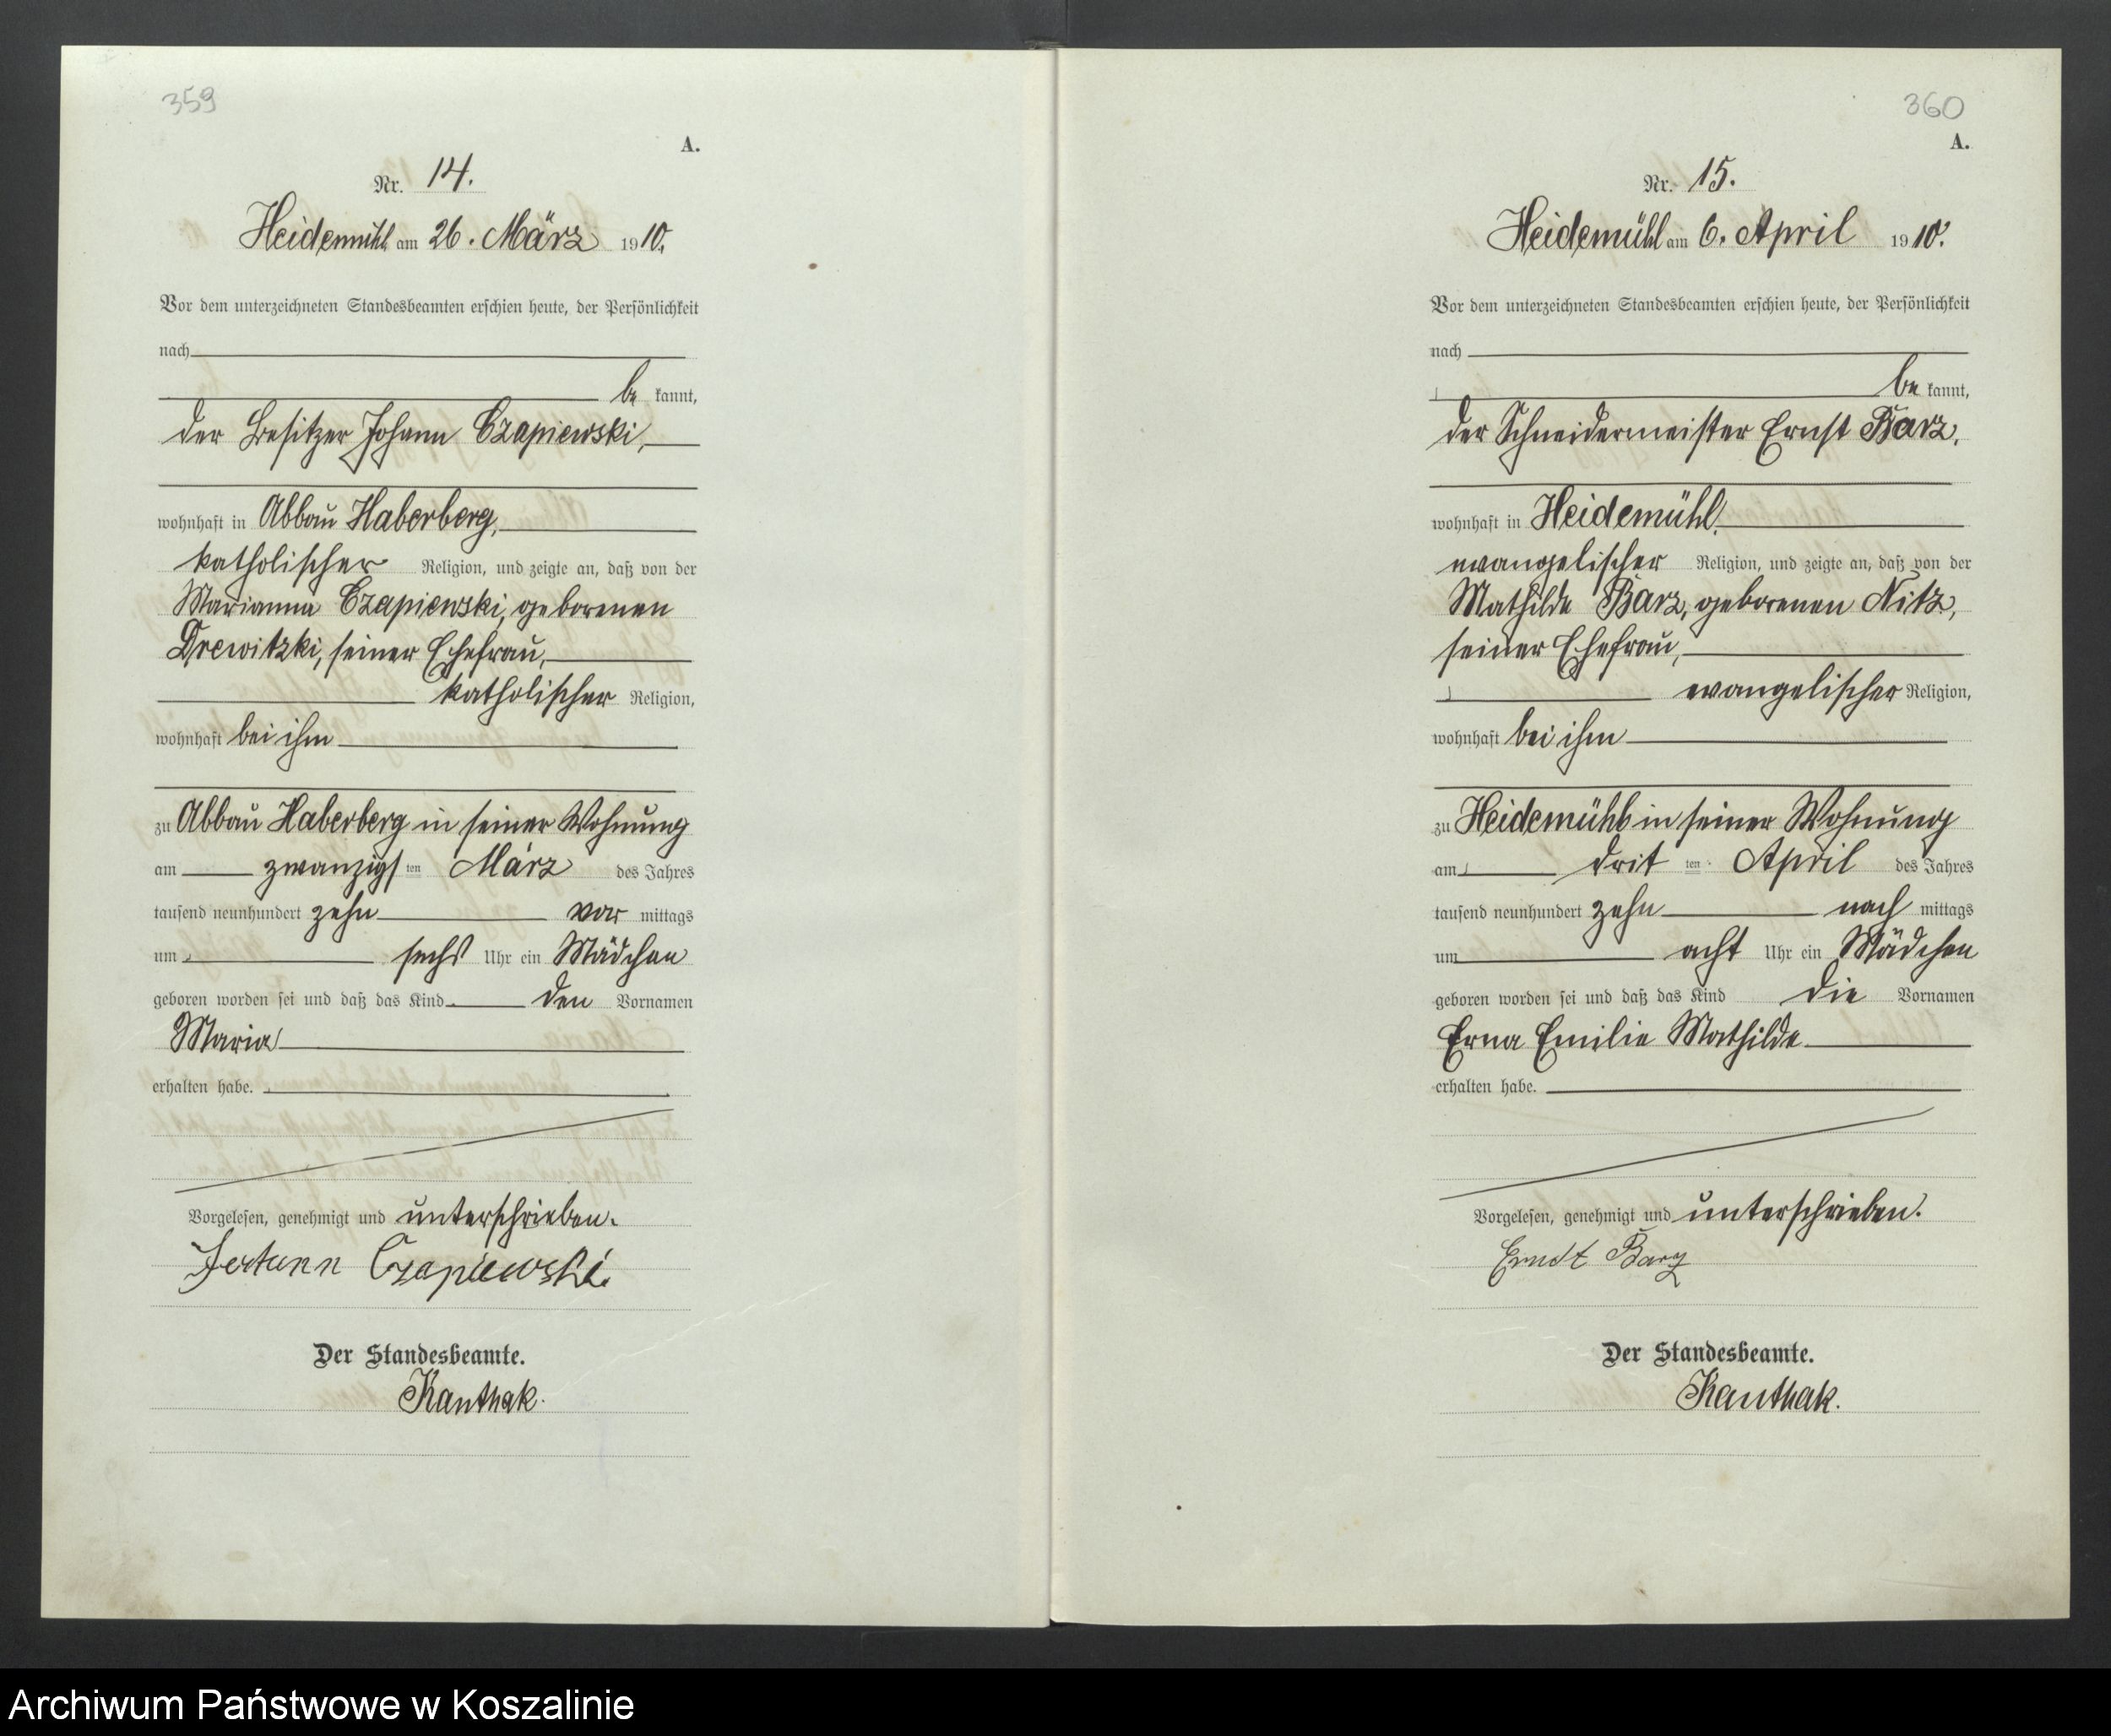 359
A.
Nr. 14.
Heidemühl am 26. März 1910.
Vor dem unterzeichneten Standesbeamten erschien heute, der Persönlichkeit
nach
be kannt,
der Besitzer Johann Czapiewski,
wohnhaft in Abbau Haberberg,
katholischer Religion, und zeigte an, daß von der
Marianna Czapiewski, geborenen
Drewitzki, seiner Ehefrau,
katholischer Religion,
wohnhaft bei ihm
zu Abbau Haberberg in seiner Wohnung
am zwanzigsten März des Jahres
tausend neunhundert zehn vor mittags
um sechs Uhr ein Mädchen
geboren worden sei und daß das Kind den Vornamen
Maria
erhalten habe.
Vorgelesen, genehmigt und unterschrieben.
Johann Czapiewski.
Der Standesbeamte.
Kanthak.
360
A.
Nr. 15.
Heidemühl am 6. April 1910.
Vor dem unterzeichneten Standesbeamten erschien heute, der Persönlichkeit
nach
be kannt,
der Schneidermeister Ernst Barz,
wohnhaft in Heidemühl,
evangelischer Religion, und zeigte an, daß von der
Mathilde Barz, geborenen Nitz,
seiner Ehefrau,
evangelischer Religion,
wohnhaft bei ihm
zu Heidemühl in seiner Wohnung
am drit ten April des Jahres
tausend neunhundert zehn nach mittags
um acht Uhr ein Mädchen
geboren worden sei und daß das Kind die Vornamen
Erna Emilie Mathilde
erhalten habe.
Vorgelesen, genehmigt und unterschrieben.
Ernst Barz
Der Standesbeamte.
Kanthak.
Archiwum Państwowe w Koszalinie